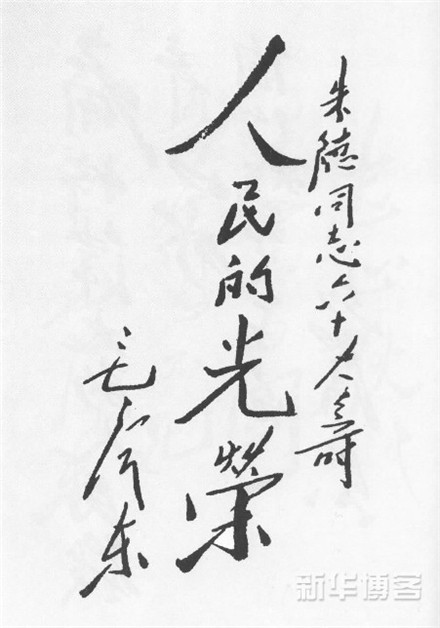 朱德同志六十大寿
人民的光榮
毛澤东
新华博客